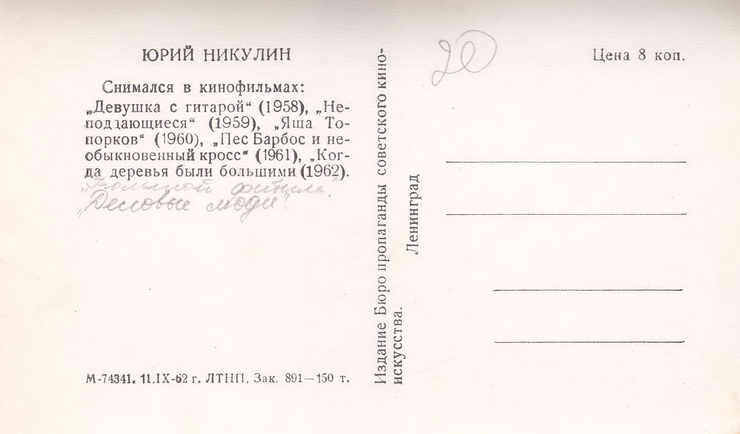 ЮРИЙ НИКУЛИН
Снимался в кинофильмах:
„Девушка с гитарой“ (1958), „Не-
поддающиеся“ (1959), „Яша То-
порков“ (1960), „Пес Барбос и не-
обыкновенный кросс“ (1961), „Ког-
да деревья были большими (1962).
"Большой фитиль".
"Деловые люди".
М-74341. 11.IX-62 г. ЛТНП. Зак. 891—150 т.
Издание Бюро пропаганды советского кино-
искусства.
Ленинград
20
Цена 8 коп.